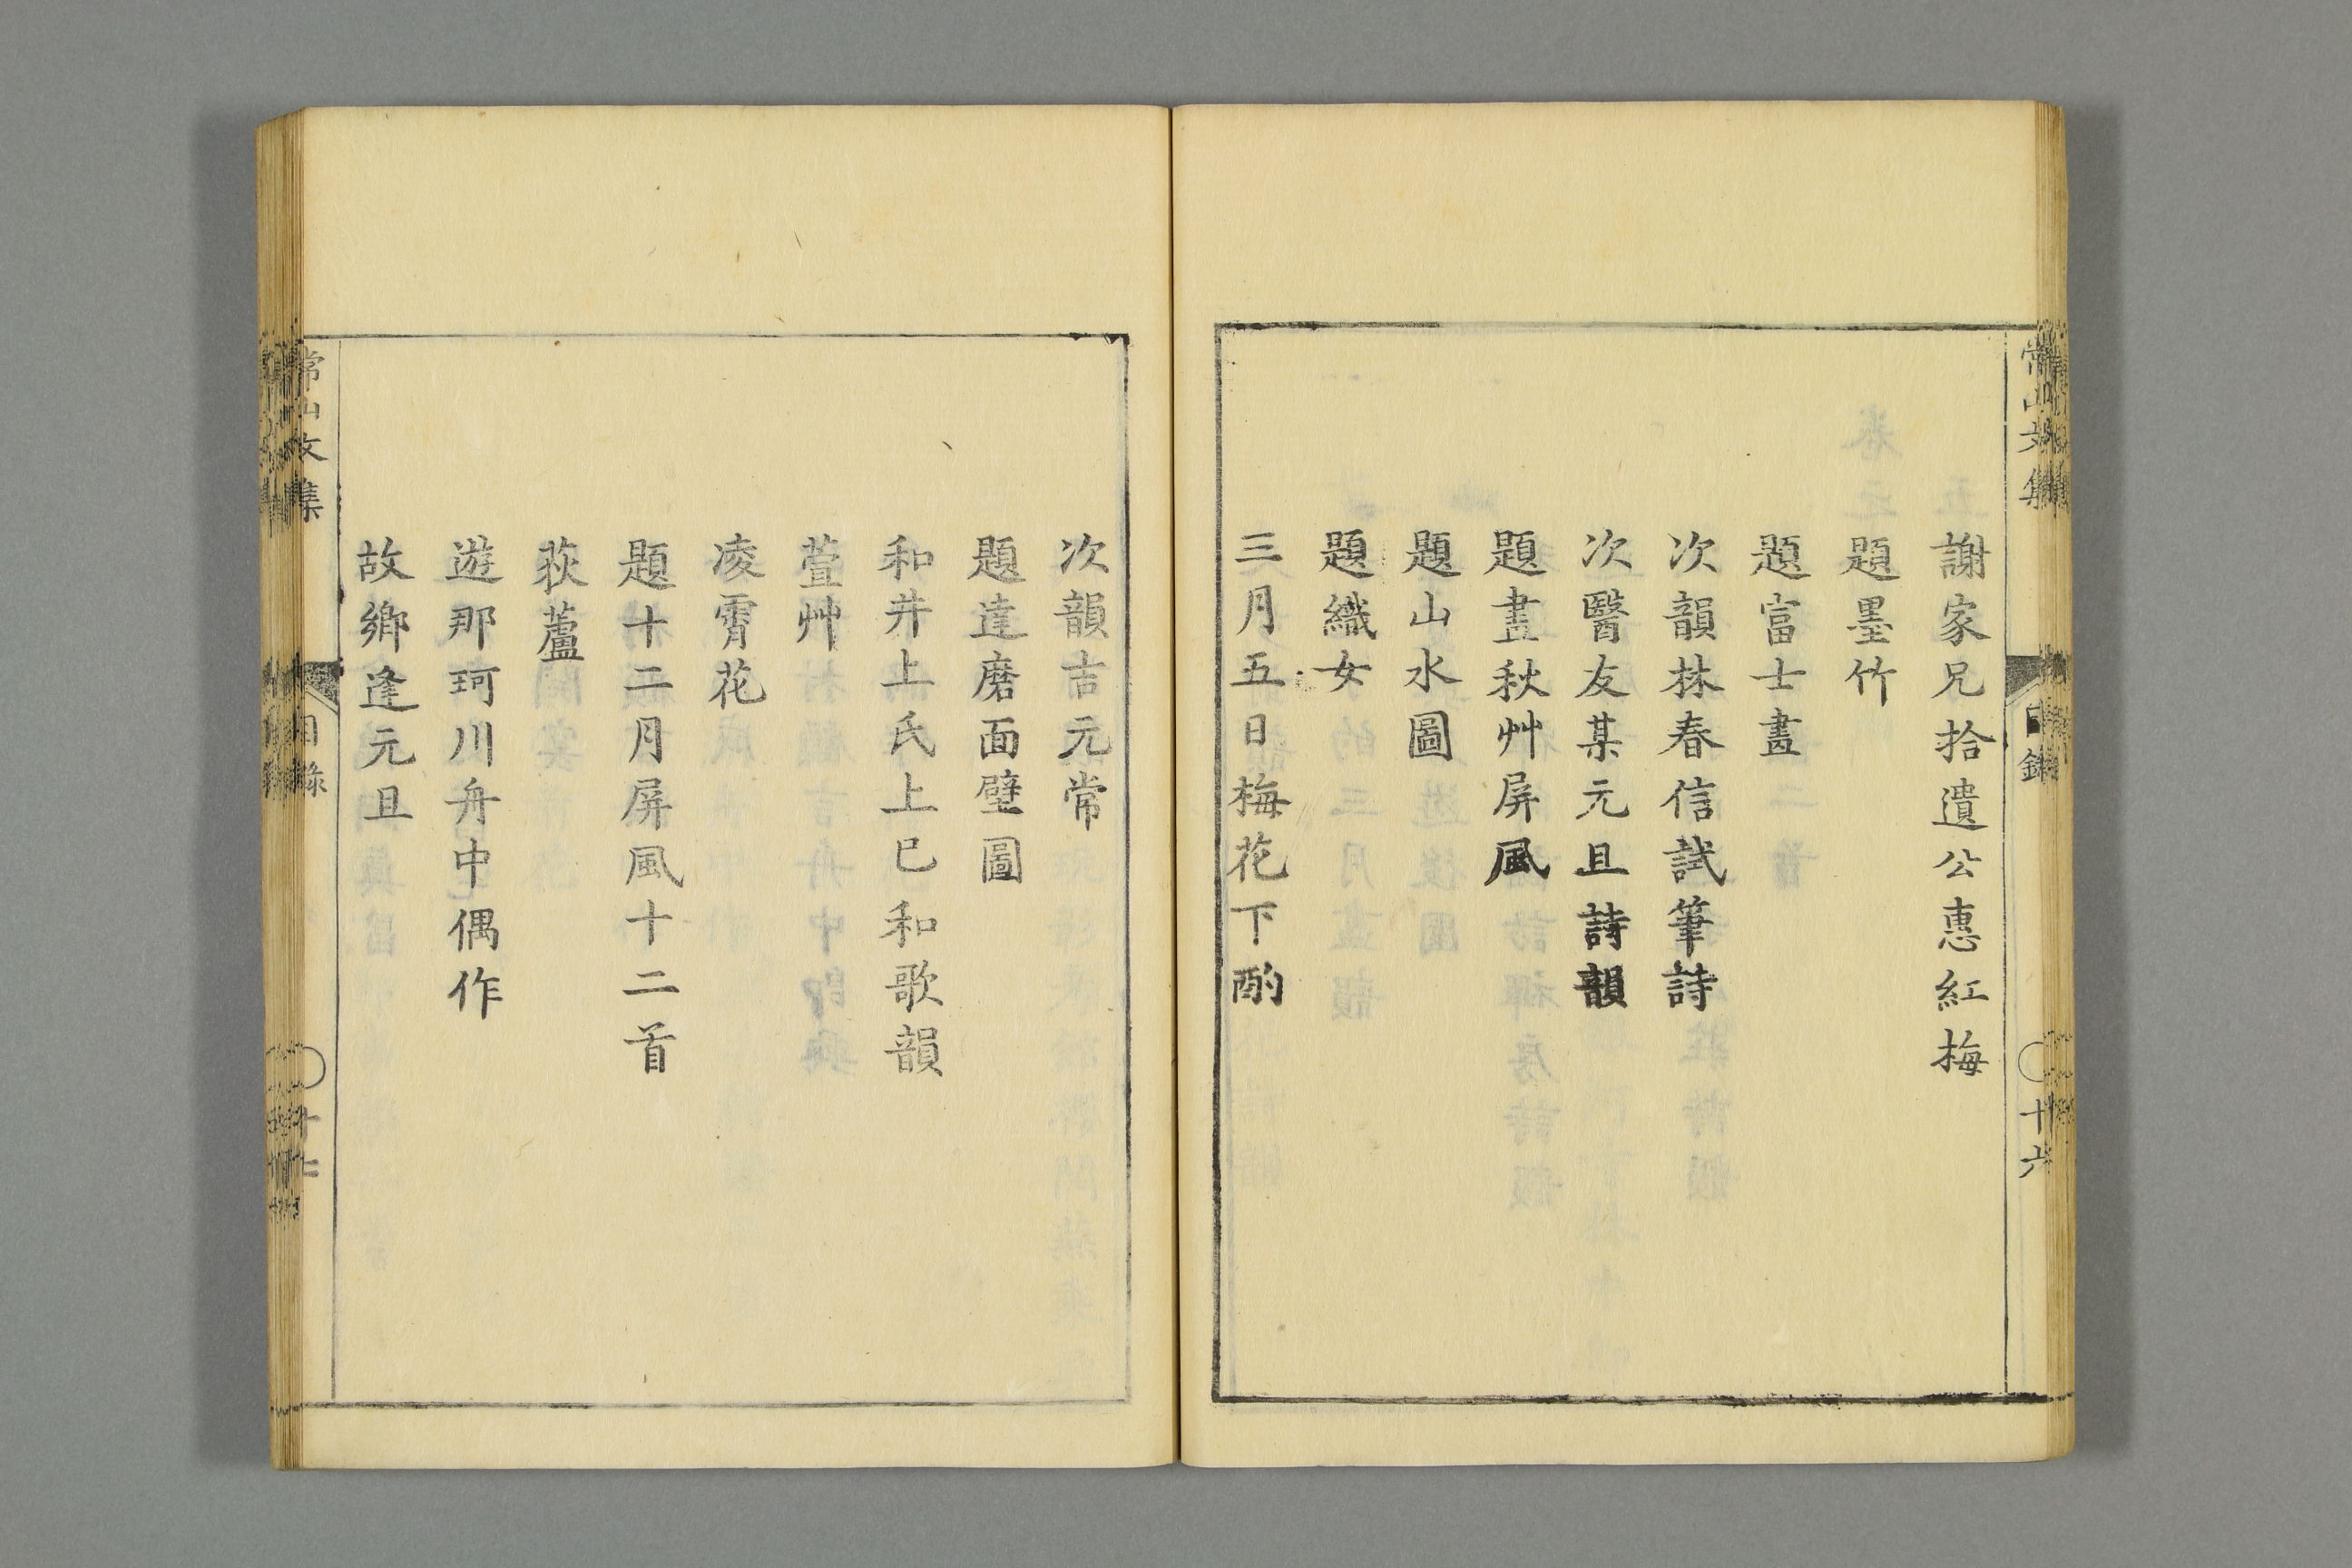 常山文集 目錄 ○十六
謝家兄拾遺公惠紅梅
題墨竹
題富士畫
次韻林春信試筆詩
次醫友某元旦詩韻
題畫秋艸屏風
題山水圖
題織女
三月五日梅花下酌
次韻吉元常
題達磨面壁圖
和井上氏上巳和歌韻
萱艸
凌霄花
題十二月屏風十二首
荻蘆
遊那珂川舟中偶作
故鄉逢元旦
常山文集 目錄 ○十七